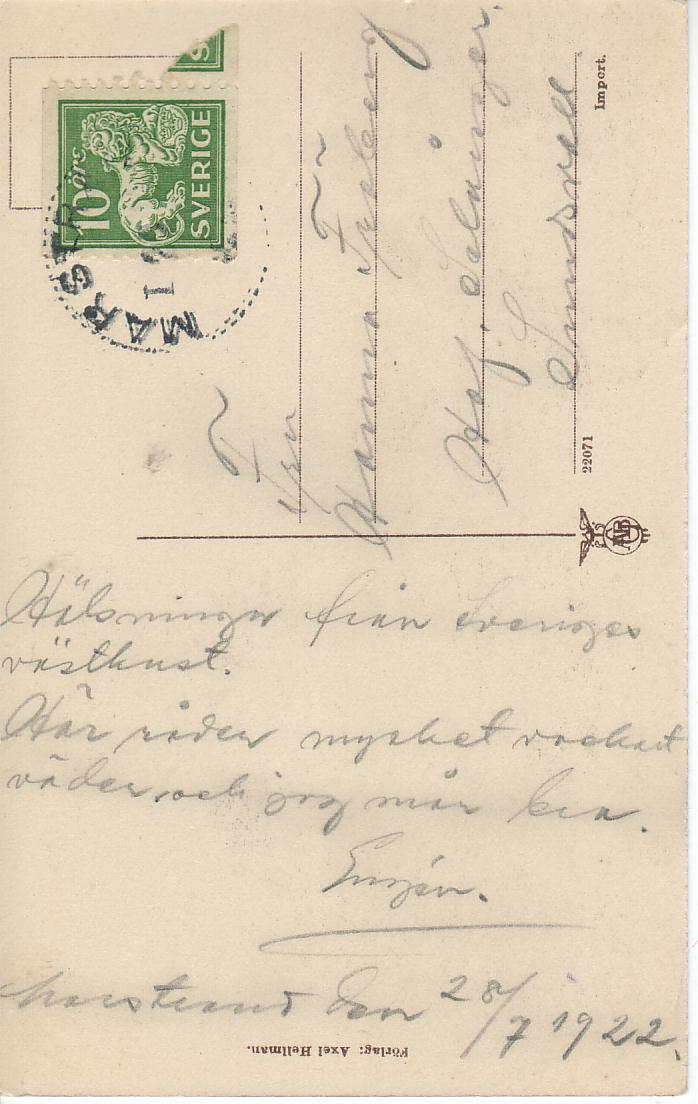 Hälsningar från Sveriges
västkust.
Här råder mycket vackert
väder, och jag mår bra.
Marstrand den 28/7 1922.
Förlag: Axel Hellman.
Fru
Hanna
Haf. Selånger.
Sundsvall
Import.
22071
10 öre
SVERIGE
S
MARSTR